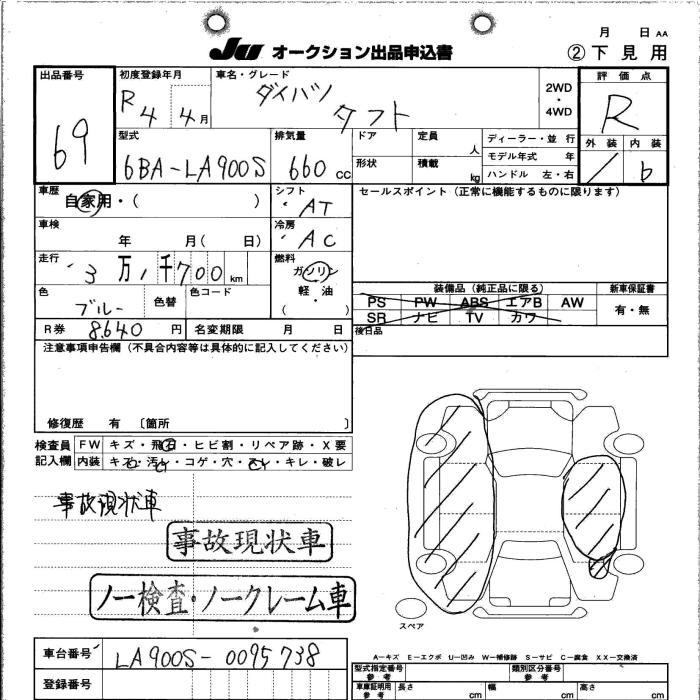 月 日 AA
JU オークション出品申込書 ②下見用
出品番号 69
初度登録年月 R4 4月
車名・グレード ダイハツ タフト
2WD・4WD
評価点 R
外装 / 内装 b
型式 6BA-LA900S
排気量 660 cc
ドア 定員 人
形状 積載 kg
ディーラー・並行
モデル年式 年
ハンドル 左・右
車歴 自家用・( )
シフト AT
セールスポイント(正常に機能するものに限ります)
車検 年 月( 日)
冷房 AC
走行 3万1千700km
燃料 ガソリン 軽・油 ( )
色 ブルー 色替 色コード
装備品(純正品に限る) 新車保証書
PS PW ABS エアB AW 有・無
SR ナビ TV カワ
R券 8,640円 名変期限 月 日
後日品
注意事項申告欄(不具合内容等は具体的に記入してください)
修復歴 有 〔箇所 〕
検査員 FW キズ・飛石・ヒビ割・リペア跡・X要
記入欄 内装 キズ・汚レ・コゲ・穴・スレ・キレ・破レ
事故現状車
事故現状車
ノー検査・ノークレーム車
スペア
A-キズ E-エクボ U-凹み W-補修跡 S-サビ C-腐食 XX-交換済
車台番号 LA900S-0095738
型式指定番号 参考 類別区分番号 参考
登録番号
車庫証明用 参考 長さ cm 幅 cm 高さ cm